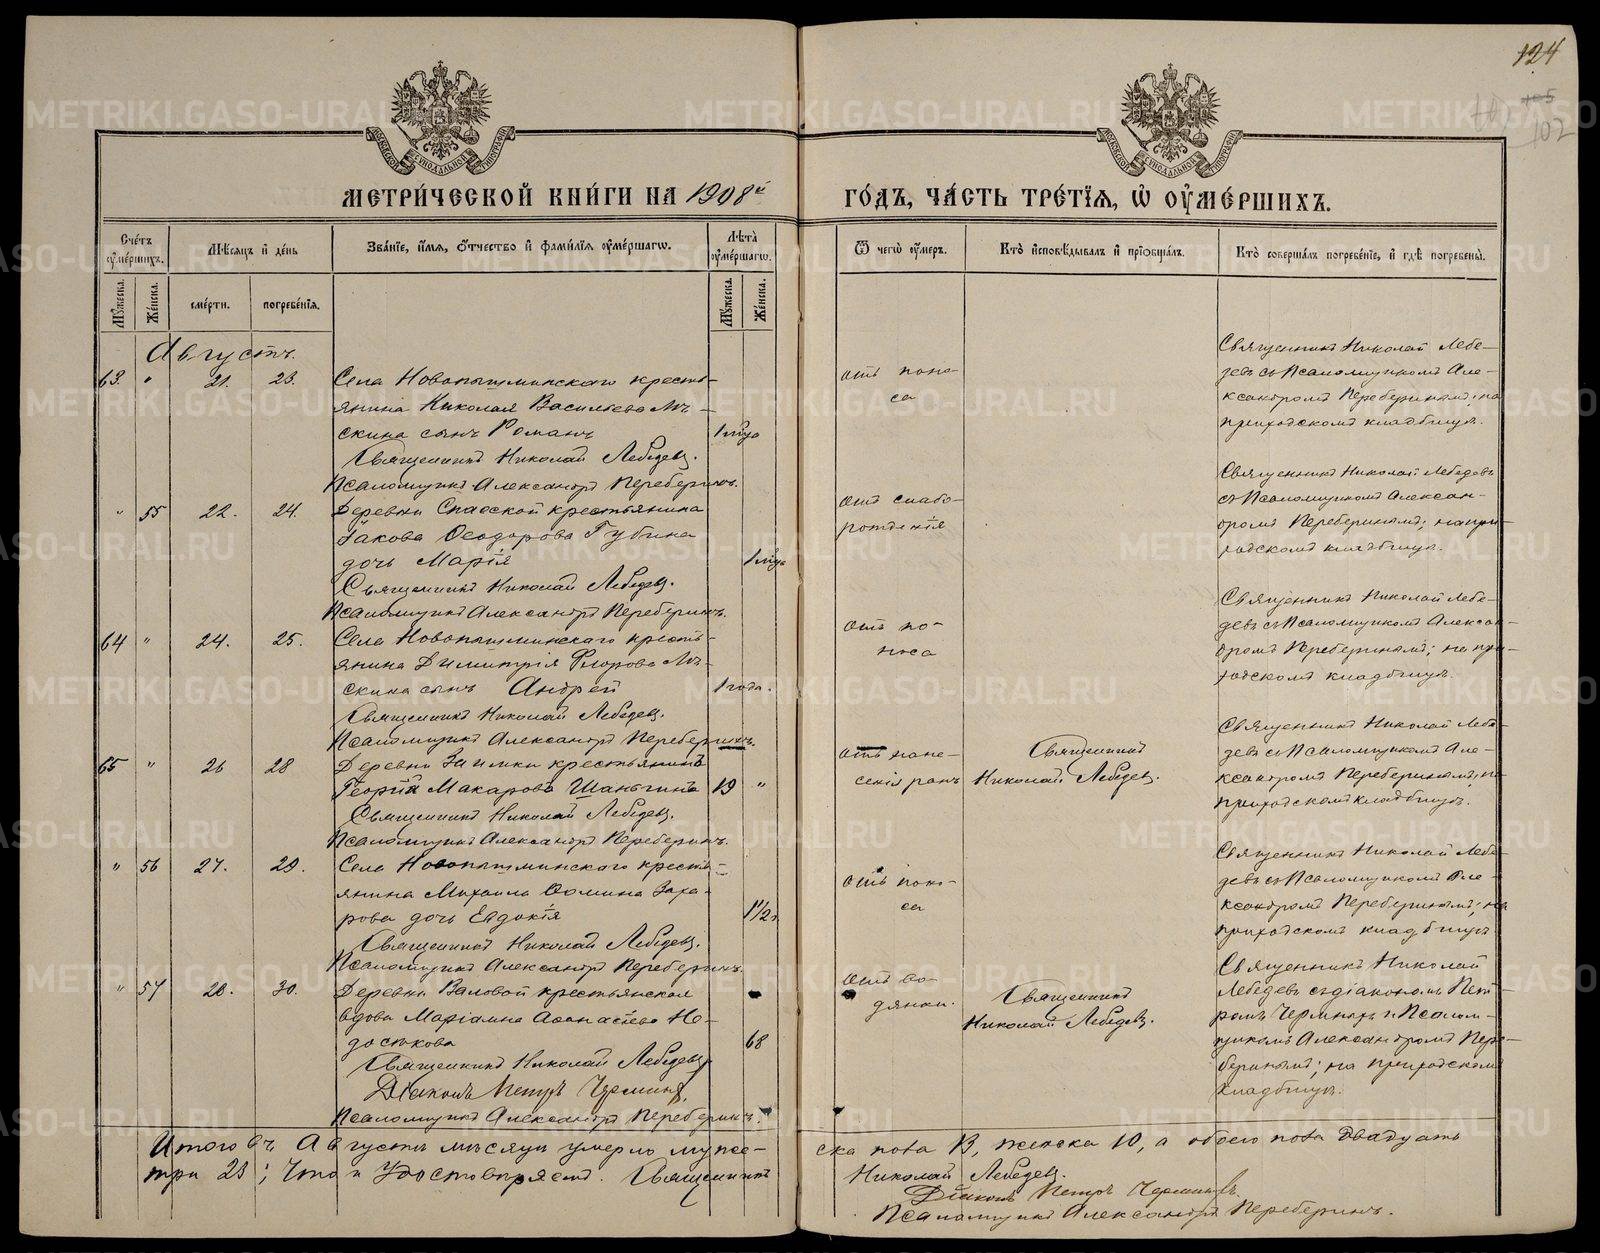 124
105
102
МОСКОВСКОЙ СѴНОДАЛЬНОЙ ТИПОГРАФІИ
МОСКОВСКОЙ СѴНОДАЛЬНОЙ ТИПОГРАФІИ
МЕТРИ́ЧЕСКОЙ КНИ́ГИ НА 1908й
ГО́ДЪ, ЧА́СТЬ ТРЕ́ТІѦ, Ѡ҆ ОУ҆МЕ́РШИХЪ.
Сче́тъ оу҆ме́ршихъ.
Мѣ́сяцъ и҆ де́нь
Зва́ніе, и҆́мя, ѻ҆́тчество и҆ фами́лія оу҆ме́ршагѡ.
Лѣ́та оу҆ме́ршагѡ.
Ѿ чегѡ̀ оу҆́меръ.
Кто̀ и҆сповѣ́дывалъ и҆ пріѡбща́лъ.
Кто̀ соверша́лъ погребе́ніе, и҆ гдѣ̀ погребены̀.
Мꙋ́жеска.
Же́нска.
сме́рти.
погребе́нія.
Мꙋ́жеска.
Же́нска.
Августъ.
63. " 21. 23.
Села Новопышминскаго кресть-
янина Николая Васильева Мъ-
скина сынъ Романъ
Священникъ Николай Лебедевъ.
Псаломщикъ Александръ Переберинъ.
отъ поно-
са
Священникъ Николай Лебе-
девъ съ Псаломщикомъ Але-
ксандромъ Переберинымъ; на
приходскомъ кладбищѣ.
" 55 22. 24.
Деревни Спасской крестьянина
Іакова Ѳеодорова Губина
дочь Марія
Священникъ Николай Лебедевъ.
Псаломщикъ Александръ Переберинъ.
отъ слабо-
рожденія
Священникъ Николай Лебедевъ
съ Псаломщикомъ Алексан-
дромъ Переберинымъ; на при-
ходскомъ кладбищѣ.
64 " 24. 25.
Села Новопышминскаго кресть-
янина Димитрія Флорова Мъ-
скина сынъ Андрей
1 года.
Священникъ Николай Лебедевъ.
Псаломщикъ Александръ Переберинъ.
отъ по-
носа
Священникъ Николай Лебе-
девъ съ Псаломщикомъ Алексан-
дромъ Переберинымъ; на при-
ходскомъ кладбищѣ.
65 " 26 28
Деревни Заимки крестьянинъ
Георгій Макаровъ Шаньгинъ
19 "
Священникъ Николай Лебедевъ.
Псаломщикъ Александръ Переберинъ.
отъ нане-
сенія ранъ
Священникъ
Николай Лебедевъ.
Священникъ Николай Лебе-
девъ съ Псаломщикомъ Але-
ксандромъ Переберинымъ; на
приходскомъ кладбищѣ.
" 56 27. 29.
Села Новопышминскаго кресть-
янина Михаила Ѳомина Заха-
рова дочь Евдокія
1 1/2 г.
Священникъ Николай Лебедевъ.
Псаломщикъ Александръ Переберинъ.
отъ поно-
са
Священникъ Николай Лебе-
девъ съ Псаломщикомъ Але-
ксандромъ Переберинымъ; на
приходскомъ кладбищѣ.
" 57 28. 30.
Деревни Валовой крестьянская
вдова Маріамна Аѳанасіева Не-
68
Священникъ Николай Лебедевъ
Діаконъ Петръ
Псаломщикъ Александръ Переберинъ.
отъ во-
дянки.
Священникъ
Николай Лебедевъ.
Священникъ Николай
Лебедевъ съ діакономъ Пет-
ромъ и Псалом-
щикомъ Александромъ Пере-
беринымъ; на приходскомъ
кладбищѣ.
Итого въ Августѣ мѣсяцѣ умерло муже-
ска пола 13, женска 10, а обоего пола двадцать
три 23; что и удостовѣряемъ. Священникъ
Николай Лебедевъ.
Діаконъ Петръ
Псаломщикъ Александръ Переберинъ.
METRIKI.GASO-URAL.RU